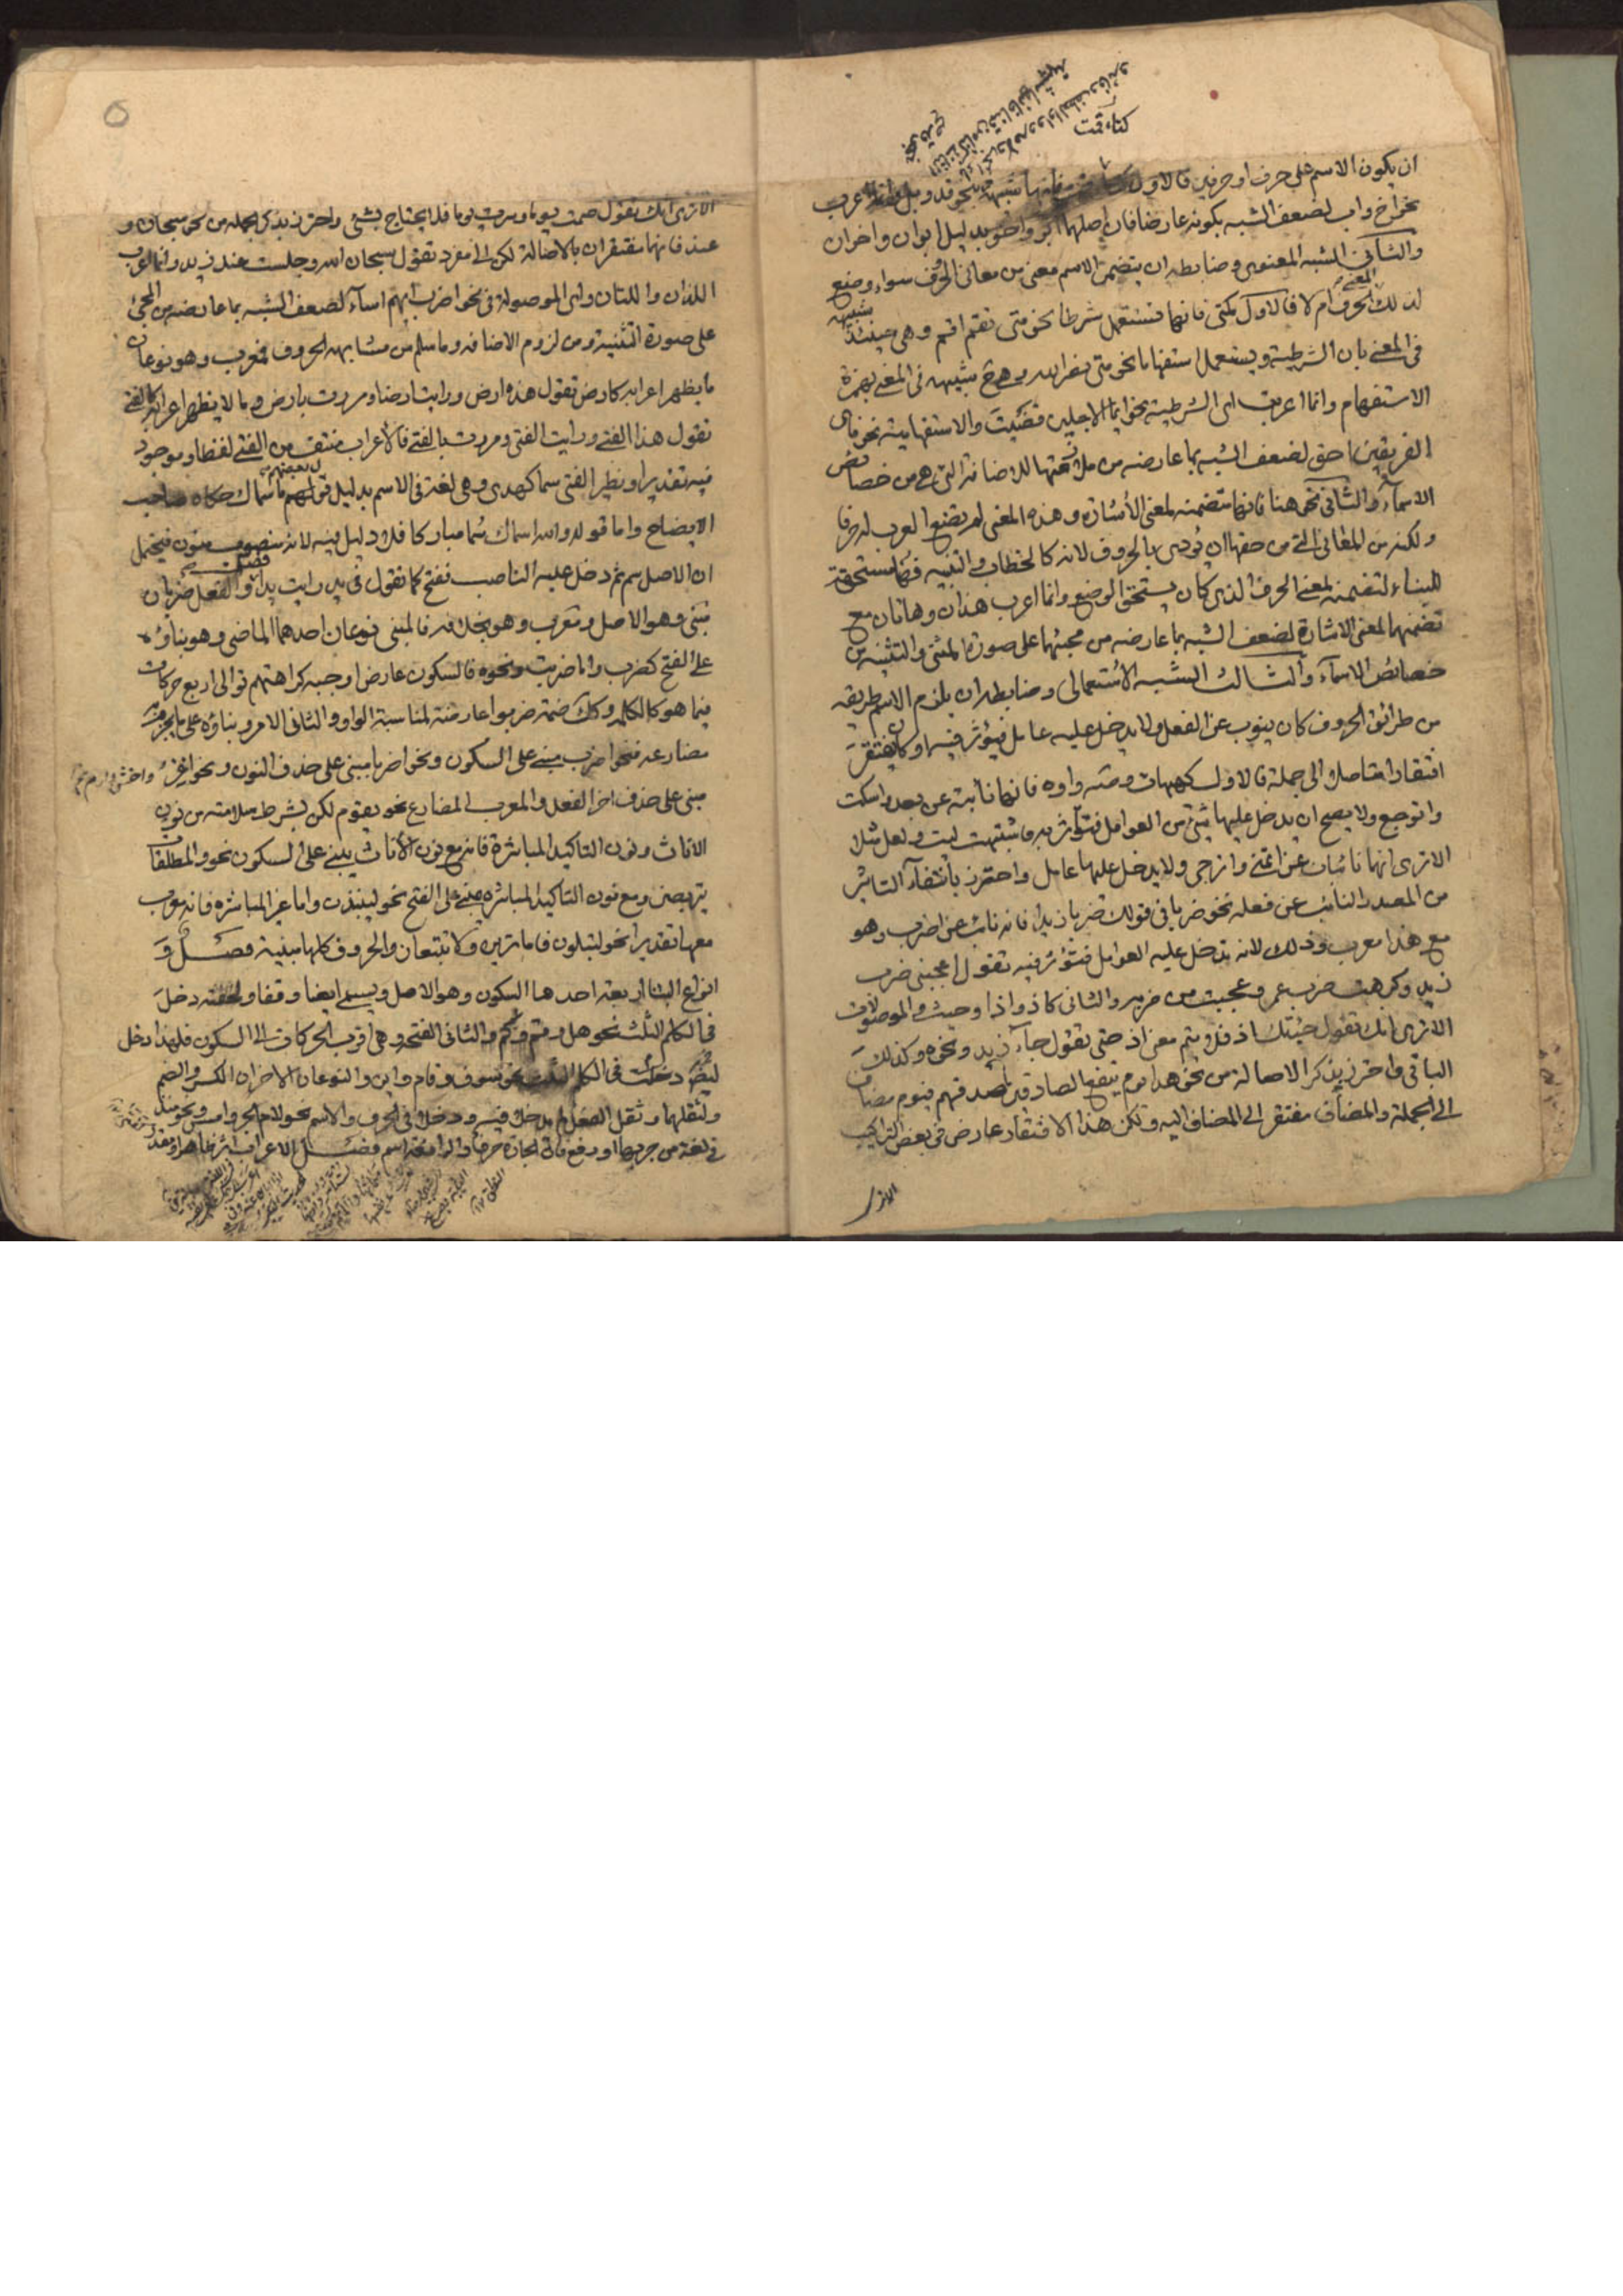 ان يكون الاسم على حرف او حرفين فالاول شبيهة بنحو قد وبل وانما اعرب
نحو اخ واب لضعف الشبه بكونه عارضا فان اصلهما ابو واخو بدليل ابوان واخوان
والثاني الشبه المعنوي وضابطه ان يتضمن الاسم معنى من معاني الحروف سواء وضع
لذلك المعنى حرف ام لا فالاول كمتى فانها تستعمل شرطا نحو متى تقم اقم وهي حينئذ شبيهة
في المعنى بان الشرطية ويستعمل استفهاما نحو متى نصر الله وهي ح شبيهه في المعنى بهمزة
الاستفهام وانما اعربت اى الشرطية نحو ايما الاجلين قضيت والاستفهامية نحو فاى
الفريقين احق لضعف الشبه بما عارضه من ملازمتها للاضافة التي هي من خصائص
الاسماء والثاني نحو هنا فانها متضمنه لمعنى الاشارة وهذه المعنى لم تضع العرب له حرفا
ولكنه من المعاني التي من حقها ان تودى بالحروف لانه كالخطاب والتنبيه فهنا مستحقة
للبناء لتضمنه لمعنى الحرف الذى كان يستحق الوضع وانما اعرب هذان وهاتان مع
تضمنهما لمعنى الاشارة لضعف الشبه بما عارضه من مجيئهما على صورة المثنى والتثنيه من
خصائص الاسماء والثالث الشبه الاستعمالى وضابطه ان يلزم الاسم طريقه
من طرائق الحروف كان ينوب عن الفعل ولا يدخل عليه عامل فيؤثر فيه او كان يفتقر
افتقارا متاصلا الى جملة فالاول كهيهات وصه واوه فانها نائبة عن بعد واسكت
واتوجع ولا يصح ان يدخل عليها شئ من العوامل فتتأثر به فاشبهت ليت ولعل مثلا
الاترى انها نائبان عن اتمنى واترجى ولا يدخل عليها عامل واحترز بانتفاء التاثر
من المصدر النائب عن فعله نحو ضربا في قولك ضربا زيدا فانه نائب عن اضرب وهو
مع هذا معرب وذلك لانه تدخل عليه العوامل فتؤثر فيه تقول اعجبنى ضرب
زيد وكرهت ضرب عمر وعجبت من ضربه والثانى كاذ واذا وحيث والموصولات
الاترى انك تقول جئتك اذ فلا يتم معنى اذ حتى تقول جاء زيد ونحوه وكذلك
الباقي واحترز بذكر الاصالة من نحو هذا يوم ينفع الصادقين صدقهم فيوم مضاف
الى الجملة والمضاف مفتقر الى المضاف اليه ولكن هذا الافتقار عارض في بعض التراكيب
الاترى
الاترى انك تقول صمت يوما وسرت يوما فلا يحتاج بشئ واحترز بذكر الجمله من نحو سبحان و
عند فانهما مفتقران بالاصالة لكن الى مفرد تقول سبحان الله وجلست عند زيد وانما اعرب
اللذان واللتان واى الموصولة في نحو اضرب ايهم اساء لضعف الشبه بما عارضه من المجئ
على صورة التثنية ومن لزوم الاضافه وما سلم من مشابهه الحروف فمعرب وهو نوعان
ما يظهر اعرابه كارض تقول هذه ارض ورايت ارضا ومررت بارض وما لا يظهر اعرابه كالفتى
تقول هذا الفتى ورايت الفتى ومررت بالفتى فالاعراب منتف من الفتى لفظا وموجود
فيه تقديرا ونظير الفتى سما كهدى وهي لغة في الاسم بدليل قول بعضهم ما سماك حكاه صاحب
الايضاح واما قوله والله اسماك سما مباركا فلا دليل فيه لانه منصوب منون فيحتمل
ان الاصل سم ثم دخل عليه الناصب ففتح كما تقول في يد رايت يدا فصل والفعل ضربان
مبنى وهو الاصل ومعرب وهو بخلافه فالمبنى نوعان احدهما الماضى وهو بناؤه
على الفتح كضرب واما ضربت ونحوه فالسكون عارض اوجبه كراهتهم توالى اربع حركات
فيما هو كالكلمه وكك ضمة ضربوا عارضة لمناسبة الواو والثانى الامر وبناؤه على ما يجزم به
مضارعه فنحو اضرب مبني على السكون ونحو اضربا مبنى على حذف النون ونحو اغز واخش وارم
مبنى على حذف اخر الفعل والمعرب المضارع نحو يقوم لكن بشرط سلامته من نون
الاناث ونون التاكيد المباشرة فانه مع نون الاناث يبنى على السكون نحو والمطلقات
يتربصن ومع نون التاكيد المباشره مبنى على الفتح نحو لينبذن واما غير المباشره فانه معرب
معها تقديرا نحو لتبلون فاما ترين ولا تتبعان والحروف كلها مبنية فصل و
انواع البنا اربعة احدها السكون وهو الاصل ويسمى ايضا وقفا ولخفته دخل
في الكلم الثلث نحو هل وقم وكم والثانى الفتحه وهى اقرب الحركات الى السكون فلهذا دخل
ايضا في الكلم الثلث نحو سوف وقام واين والنوعان الاخران الكسر والضم
ولثقلهما وثقل الفعل لم يدخلا فيه ودخلا في الحرف والاسم نحو لام الجر وامس ونحو منذ
في لغة من جر بها او رفع فان الجارة حرف والرافعة اسم فصل الاعراب اثر ظاهر او مقدر